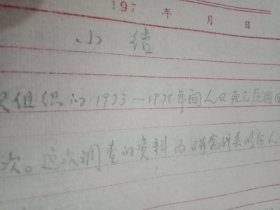 197 年 月 日
小结
组织的1973—1975年间人口死亡原因
次。这次调查的资料为研究